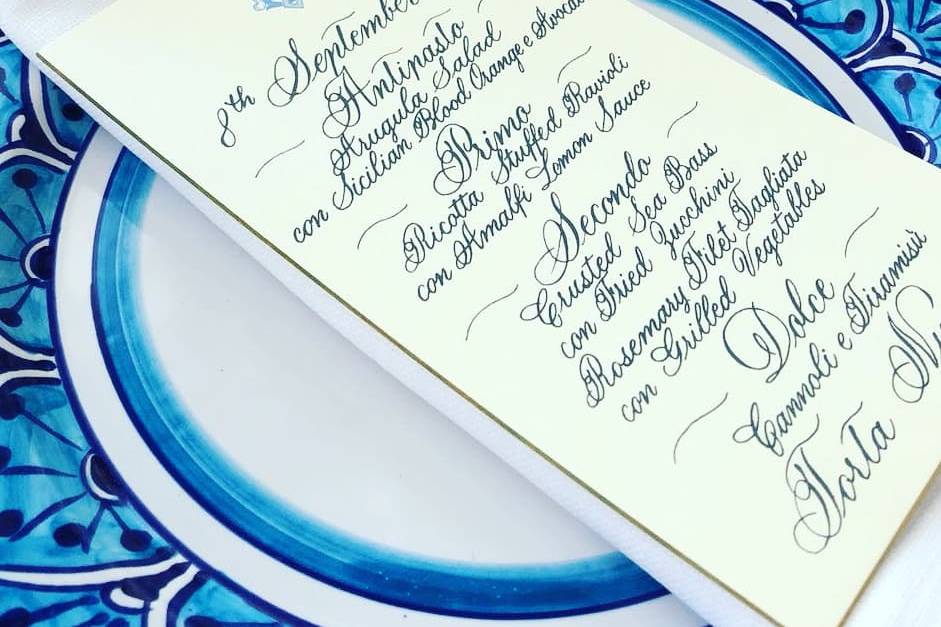 8th September
Antipasto
Arugula Salad
con Sicilian Blood Orange e Avocado
Primo
Ricotta Stuffed Ravioli
con Amalfi Lemon Sauce
Secondo
Crusted Sea Bass
con Fried Zucchini
Rosemary Filet Tagliata
con Grilled Vegetables
Dolce
Cannoli e Tiramisù
Torta